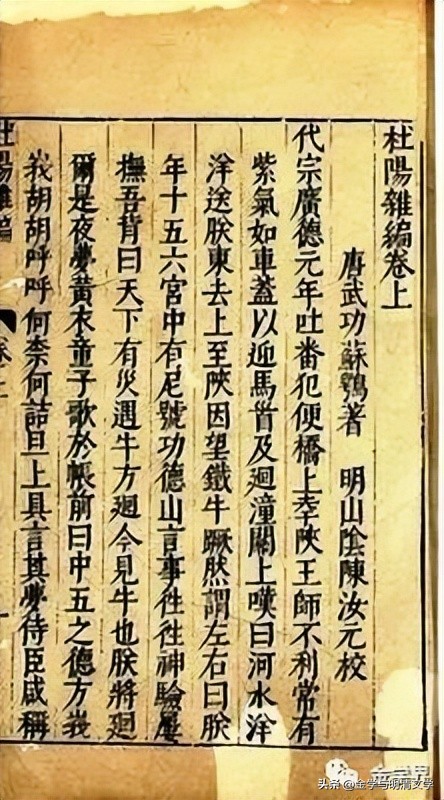 杜陽雜編卷上
唐武功蘇鶚著 明山陰陳汝元校
代宗廣德元年吐番犯便橋上幸陜王師不利常有
紫氣如車蓋以迎馬首及迴潼關上嘆曰河水洋
洋送朕東去上至陜因望鐵牛蹶然謂左右曰朕
年十五六宮中有尼號功德山言事徃徃神驗屢
撫吾背曰天下有災遇牛方迴今見牛也朕將迴
爾是夜夢黃衣童子歌於帳前曰中五之德方峩
峩胡胡呼呼何柰何詰旦上具言其夢侍臣咸稱
杜陽雜編
卷上
頭条 @金学与明清文学
金学界